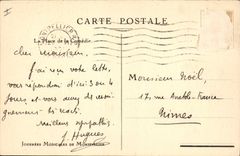 CARTE POSTALE
La Place de la Comédie
cher monsieur,
J'ai reçu votre lettre,
vous répondrai d'ici 3 ou 4
jours et vous
Meilleures
J. Hugues
Journées Médicales de Montpellier
Monsieur Noël,
17, rue Anatole France
Nîmes